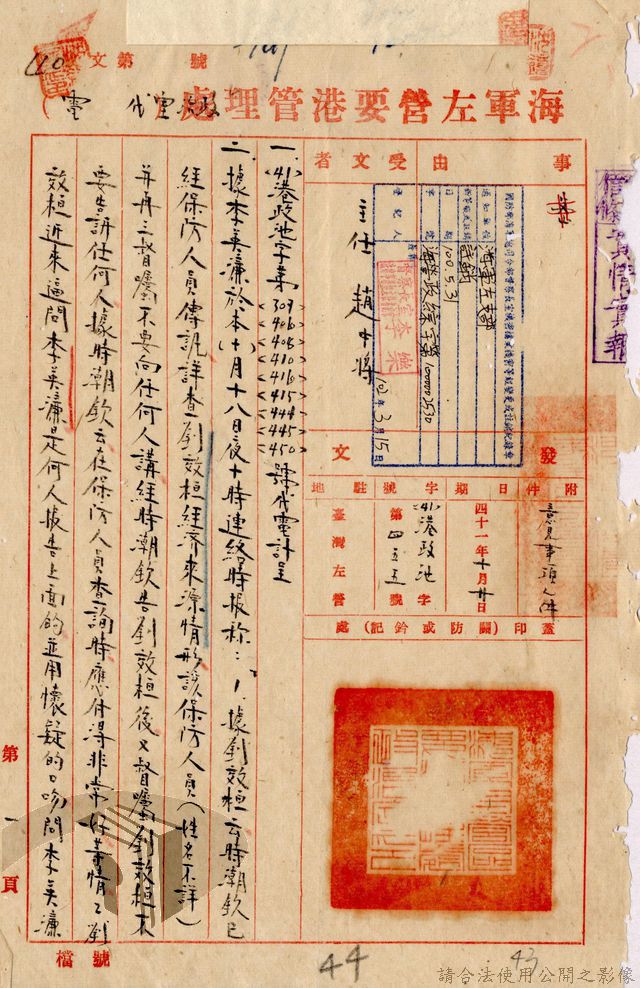 文第 號
海軍左營要港管理處
代電
事由
受文者
主任 趙中將
國防部海軍總司令部
海軍左支部
註銷
100.5.31
登記人
101年3月15日
發文
附件 日期 字號 駐地
意見事項乙件
四十一年十月廿日
(41)港政池字
第四五五號
臺灣左營
蓋印(關防或鈐記)處
一、(41)港政池字第309 406 408 410 416 415 444 445 450號代電計呈
二、據李英濂於本(十)月十八日夜十時連絡時報称:1.據劉效桓云時潮欽已
經保防人員傳訊詳查劉效桓經濟來源情形該保防人員(姓名不詳)
并再三督囑不要向任何人講經時潮欽告劉效桓後又督囑劉效桓不
要告訴任何人據時潮欽云在保防人員查詢時應付得非常好
劉
效桓近來逼問李英濂是何人報告上面的並用懷疑的口吻問李英濂
第一頁
檔號
44
43
請合法使用公開之影像